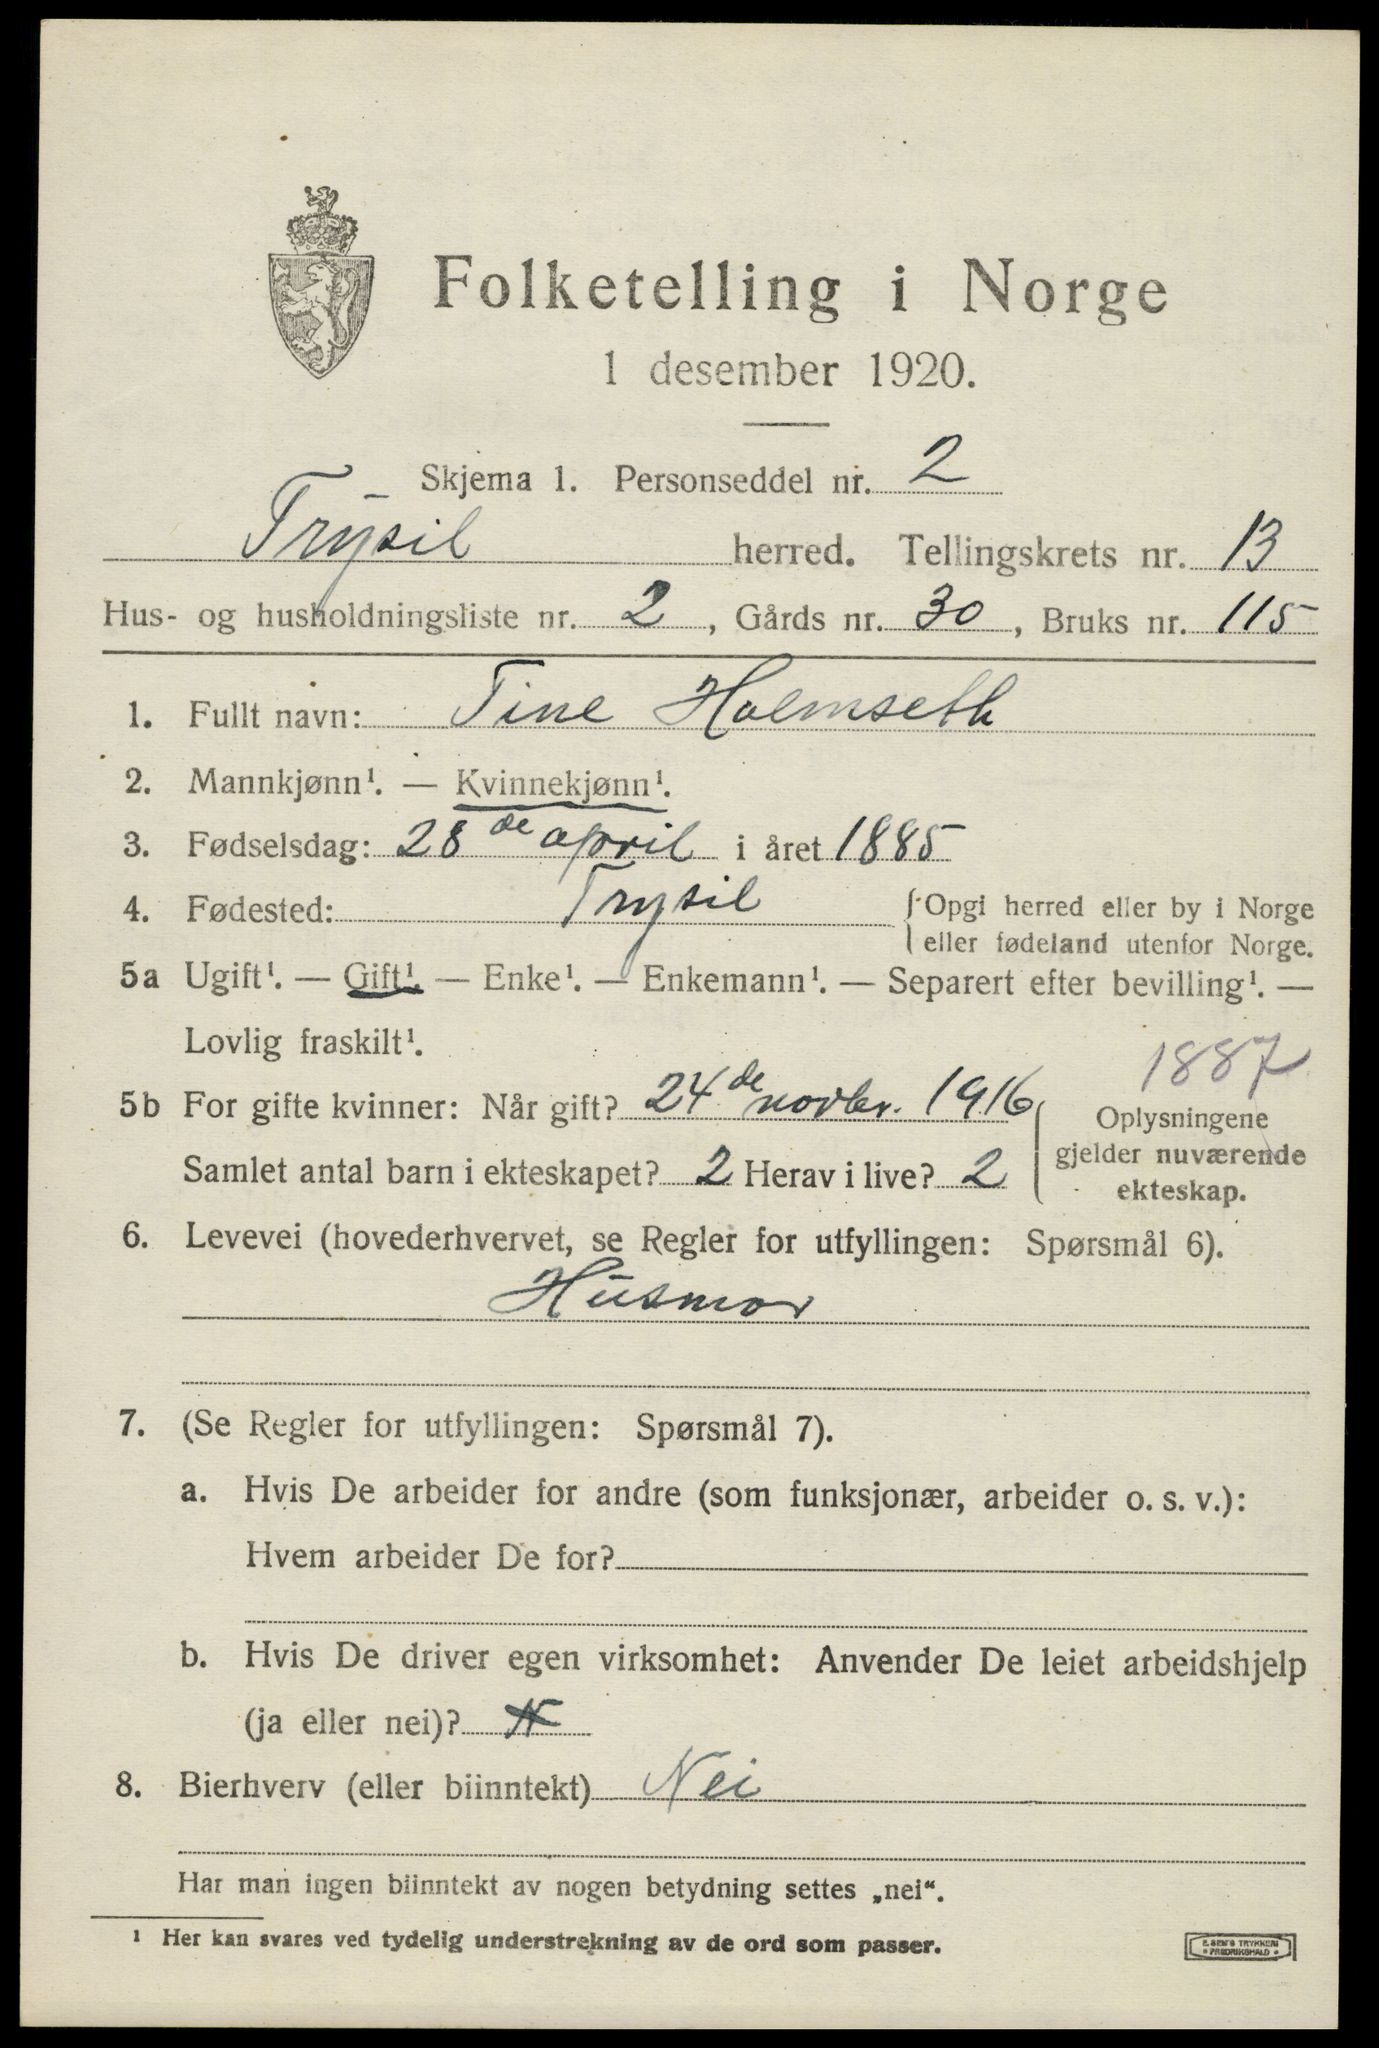 Folketelling i Norge
1 desember 1920.
Skjema 1. Personseddel nr. 2
Trysil herred. Tellingskrets nr. 13
Hus- og husholdningsliste nr. 2, Gårds nr. 30, Bruks nr. 115
1. Fullt navn: Tine Holmseth
2. Mannkjønn¹. — Kvinnekjønn¹.
3. Fødselsdag: 28de april i året 1885
4. Fødested: Trysil {Opgi herred eller by i Norge
eller fødeland utenfor Norge.
5a Ugift¹. — Gift¹. — Enke¹. — Enkemann¹. — Separert efter bevilling¹. —
Lovlig fraskilt¹.
1887
5b For gifte kvinner: Når gift? 24de novbr. 1916
Samlet antal barn i ekteskapet? 2 Herav i live? 2
Oplysningene
gjelder nuværende
ekteskap.
6. Levevei (hovederhvervet, se Regler for utfyllingen: Spørsmål 6).
Husmor
7. (Se Regler for utfyllingen: Spørsmål 7).
a. Hvis De arbeider for andre (som funksjonær, arbeider o. s. v.):
Hvem arbeider De for?
b. Hvis De driver egen virksomhet: Anvender De leiet arbeidshjelp
(ja eller nei)? N
8. Bierhverv (eller biinntekt) Nei
Har man ingen biinntekt av nogen betydning settes „nei“.
¹ Her kan svares ved tydelig understrekning av de ord som passer.
E. SEM'S TRYKKERI
FREDRIKSHALD